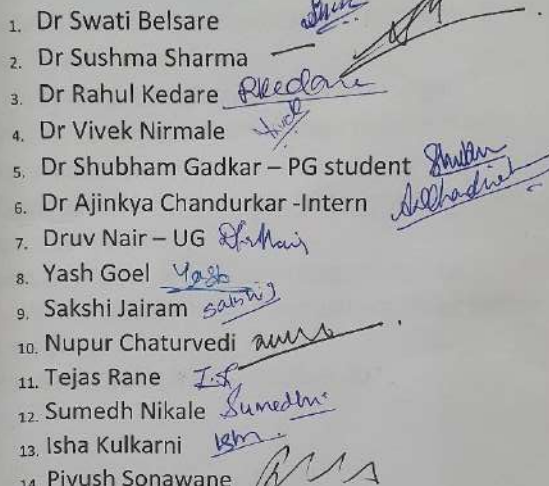 1. Dr Swati Belsare
2. Dr Sushma Sharma
3. Dr Rahul Kedare RKedare
4. Dr Vivek Nirmale Vivek
5. Dr Shubham Gadkar – PG student
6. Dr Ajinkya Chandurkar -Intern
7. Druv Nair – UG
8. Yash Goel Yash
9. Sakshi Jairam Sakshi J
10. Nupur Chaturvedi
11. Tejas Rane
12. Sumedh Nikale Sumedh
13. Isha Kulkarni
14. Piyush Sonawane